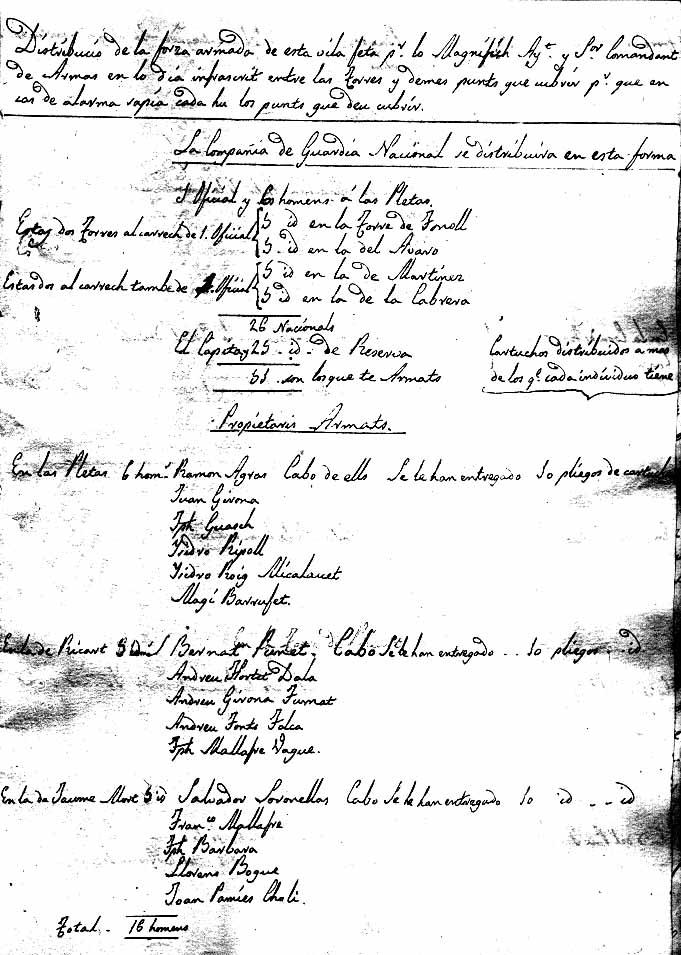 Distribució de la forza armada de esta vila feta pr. lo Magnífich Ayt. y Sor. Comandant
de Armas en lo dia infrascrit entre las Torres y demes punts que cubrir pr. que en
cas de alarma sapia cada hu los punts que deu cubrir.
La Compañia de Guardia Nacional se distribuira en esta forma
1 Oficial y 6 homens á las Pletas.
Estas dos Torres al carrech de 1. Oficial
5 id en la Torre de Fonoll
5 id en la del Avaro
Estas dos al carrech tambe de 1. Oficial
5 id en la de Martinez
5 id en la de la Cabrera
26 Nacionals
El Capita y 25 - id - de Reserva
51 son los que te Armats
Cartuchos distribuidos a mas
de los q.e cada individuo tiene
Propietaris Armats.
En las Pletas 6 hom.s Ramon Agras Cabo de ells Se le han entregado 10 pliegos de
Juan Girona
Jph Guasch
Ysidro Ripoll
Ysidro Roig Micalauet
Magí Barrufet.
En la de Ricart 5 Bernat Cabo Se le han entregado .. 10 pliegos .. id
Andreu Fortet Dala
Andreu Girona Furnat
Andreu Fonts Falca
Jph Mallafre Vague.
En la de Jaume Mort 5 id Salvador Soronellas Cabo Se le han entregado 10 id .. id
Fran.co Mallafre
Jph Barbara
Llorens Bogue
Joan Pamies Chali.
Total - 16 homens